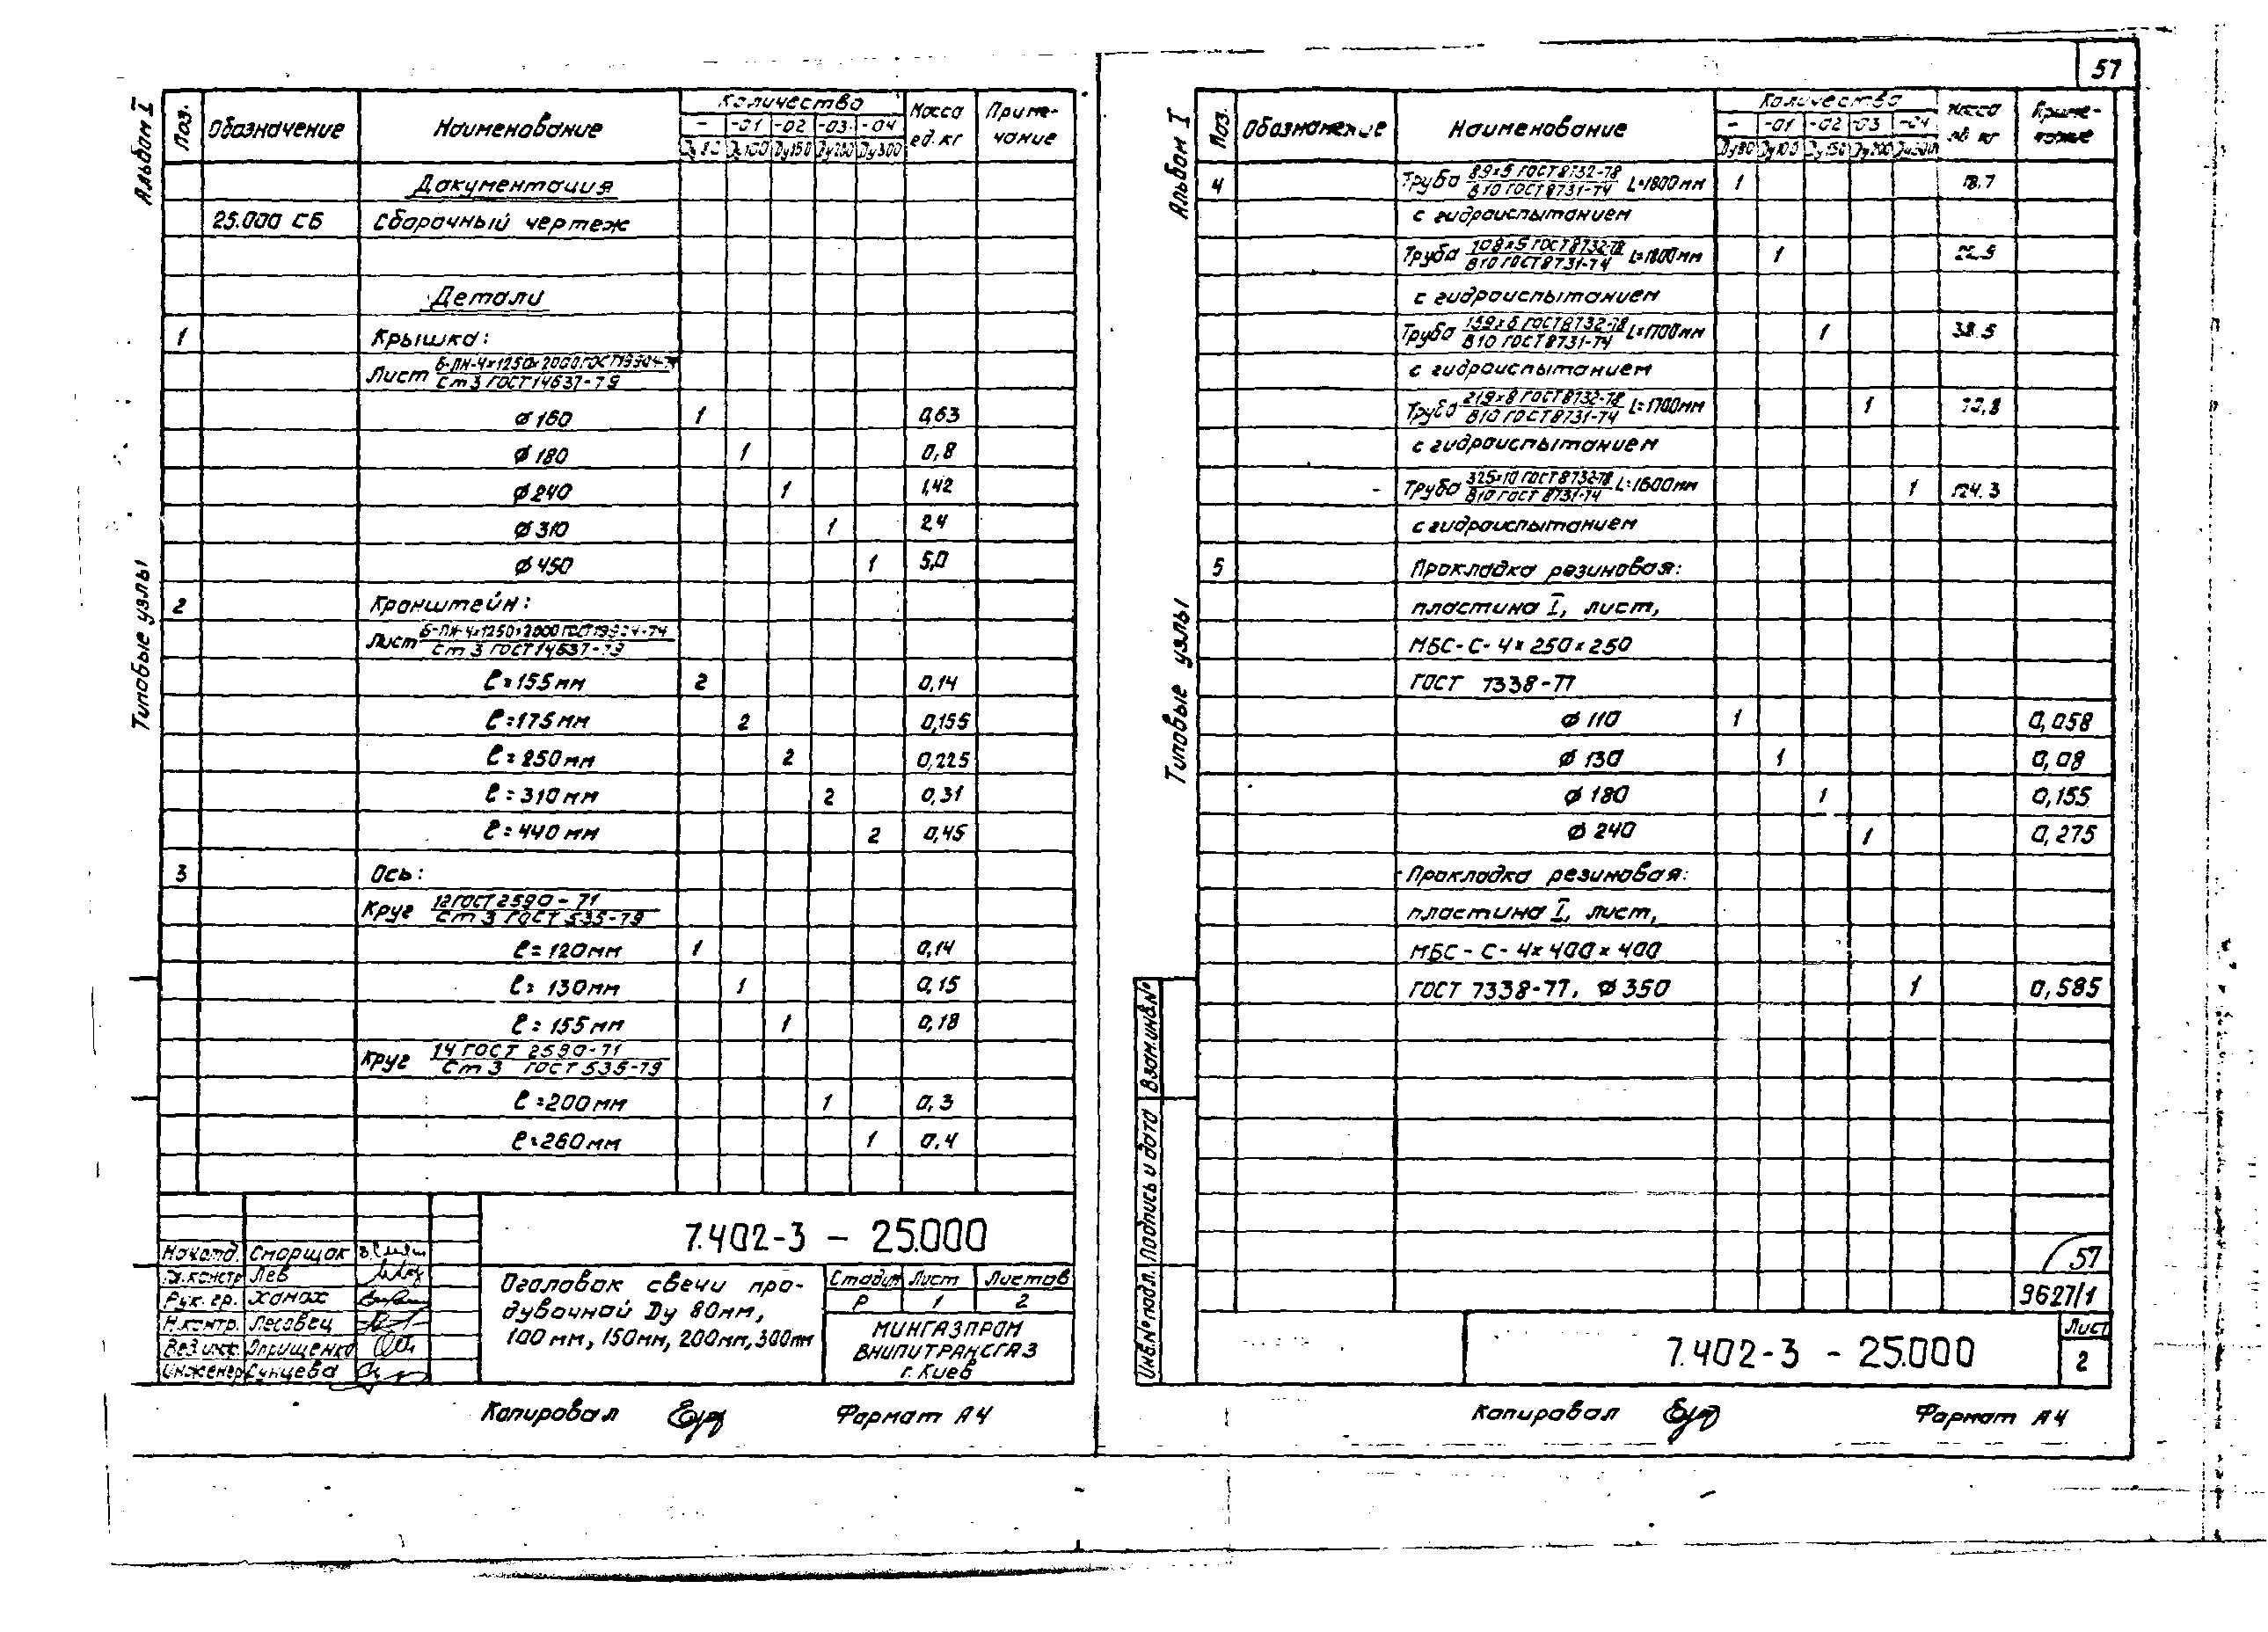 57
Альбом I
Типовые узлы
Поз. Обозначение Наименование Количество Масса ед. кг Примечание
- -01 -02 -03 -04
Ду80 Ду100 Ду150 Ду200 Ду300
Документация
25.000 СБ Сборочный чертеж
Детали
1 Крышка:
Лист Б-ПН-4×1250×2000 ГОСТ 19904-74
Ст 3 ГОСТ 14637-79
Ø160 1 0,63
Ø180 1 0,8
Ø240 1 1,42
Ø310 1 2,4
Ø450 1 5,0
2 Кронштейн:
Лист Б-ПН-4×1250×2000 ГОСТ 19904-74
Ст 3 ГОСТ 14637-79
ℓ=155мм 2 0,14
ℓ=175мм 2 0,155
ℓ=250мм 2 0,225
ℓ=310мм 2 0,31
ℓ=440мм 2 0,45
3 Ось:
Круг 12 ГОСТ 2590-71
Ст 3 ГОСТ 535-79
ℓ=120мм 1 0,14
ℓ=130мм 1 0,15
ℓ=155мм 1 0,18
Круг 14 ГОСТ 2590-71
Ст 3 ГОСТ 535-79
ℓ=200мм 1 0,3
ℓ=260мм 1 0,4
7.402-3 - 25.000
Нач.отд. Сморщок
Гл.констр Лев
Рук. гр. Ханах
Н.контр. Лесовец
Вед.инж. Оприщенко
Инженер Сунцева
Оголовок свечи про-
дувочной Ду 80мм,
100мм, 150мм, 200мм, 300мм
Стадия Лист Листов
Р 1 2
МИНГАЗПРОМ
ВНИПИТРАНСГАЗ
г. Киев
Копировал Формат А4
Альбом I
Типовые узлы
Поз. Обозначение Наименование Количество Масса ед кг Приме-
чание
- -01 -02 -03 -04
Ду80 Ду100 Ду150 Ду200 Ду300
4 Труба 89×5 ГОСТ 8732-78
В10 ГОСТ 8731-74 L=1800мм 1 18.7
с гидроиспытанием
Труба 108×5 ГОСТ 8732-78
В10 ГОСТ 8731-74 L=1800мм 1 22.5
с гидроиспытанием
Труба 159×6 ГОСТ 8732-78
В10 ГОСТ 8731-74 L=1700мм 1 38.5
с гидроиспытанием
Труба 219×8 ГОСТ 8732-78
В10 ГОСТ 8731-74 L=1700мм 1
с гидроиспытанием
Труба 325×10 ГОСТ 8732-78
В10 ГОСТ 8731-74 L=1600мм 1 124.3
с гидроиспытанием
5 Прокладка резиновая:
пластина I, лист,
МБС-С-4×250×250
ГОСТ 7338-77
Ø 110 1 0,058
Ø 130 1 0,08
Ø 180 1 0,155
Ø 240 1 0,275
Прокладка резиновая:
пластина I, лист,
МБС-С-4×400×400
ГОСТ 7338-77, Ø350 1 0,585
Взам.инв.№
Подпись и дата
Инв.№ подл.
57
9627/1
7.402-3 - 25.000
Лист
2
Копировал Формат А4